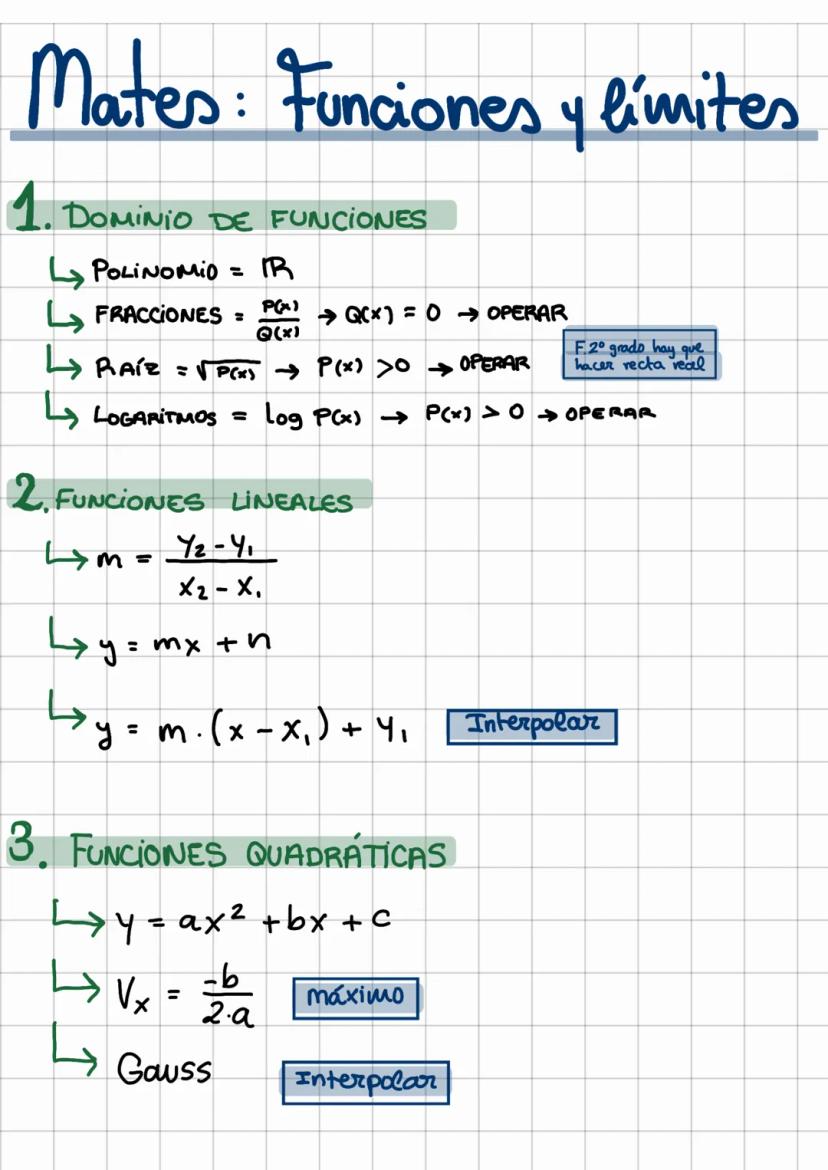 Mates: Funciones y límites
1. DOMINIO DE FUNCIONES
↳ POLINOMIO = ℝ
↳ FRACCIONES = P(x)/Q(x) → Q(x) = 0 → OPERAR
↳ RAÍZ = √P(x) → P(x) >0 → OPERAR
F.2º grado hay que
hacer recta real
↳ LOGARITMOS = log P(x) → P(x) > 0 → OPERAR
2. FUNCIONES LINEALES
↳ m = (y₂ - y₁)/(x₂ - x₁)
↳ y = mx + n
↳ y = m · (x - x₁) + y₁ Interpolar
3. FUNCIONES QUADRÁTICAS
↳ y = ax² + bx + c
↳ Vx = -b/2·a máximo
↳ Gauss Interpolar